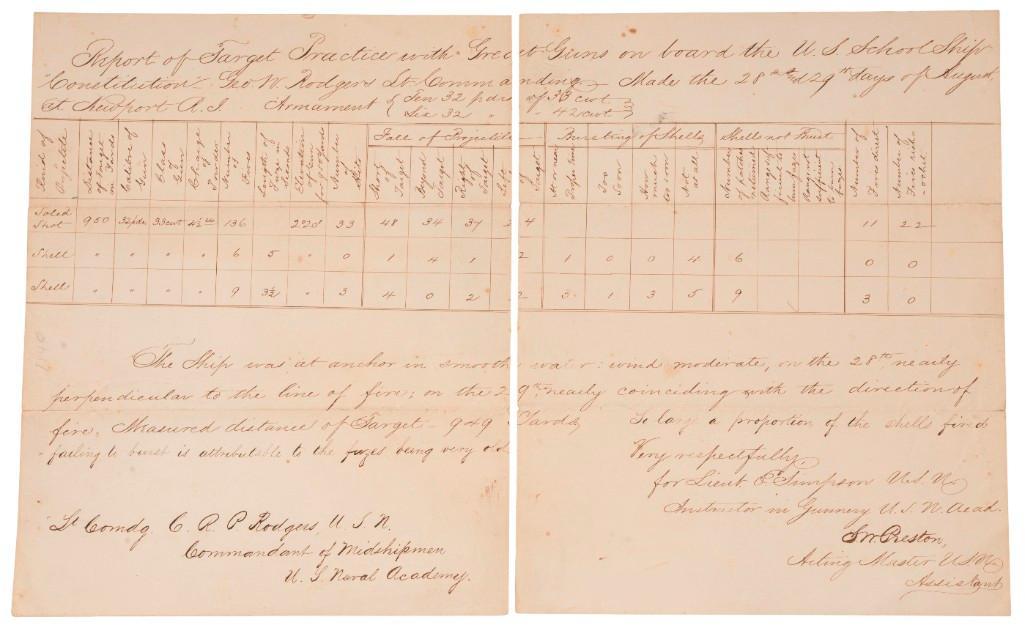 Report of Target Practice with Great Guns on board the U. S. School Ship
"Constitution" Geo. W. Rodgers Lt. Commanding Made the 28th & 29th days of August
at Newport R. I. Armament { Ten 32 pdrs of 33 cwt
Six 32 " - 42 cwt }
Kinds of Projectile | Distance of Target in Yards | Calibre of Gun | Class of Gun | Charge of Powder | Number of Fires | Length of Fuze in Seconds | Elevation of Gun | Number | Fall of Projectile | Short of Target | Beyond Target | Right of Target | Left of Target | Bursting of Shells | At or near Proper time | Too Soon | Not at all | Shells not Burst | Number of Fires direct | Number of Fires rico-chet
Solid Shot | 950 | 32 pdr | 33 cwt | 4½ lbs | 136 | | 2° | 33 | 48 | 34 | 37 | 4 | | | | | | | | 11 | 22
Shell | " | " | " | " | 6 | 5 | " | 0 | 1 | 4 | 1 | 2 | 1 | 0 | 0 | 4 | 6 | | | 0 | 0
Shell | " | " | " | " | 9 | 3½ | " | 3 | 4 | 0 | 2 | 2 | 3 | 1 | 3 | 5 | 9 | | | 3 | 0
The Ship was at anchor in smooth water: wind moderate, on the 28th nearly
perpendicular to the line of fire; on the 29th nearly coinciding with the direction of
fire. Measured distance of Target - 949 Yards, So large a proportion of the shells fired
failing to burst is attributable to the fuzes being very old
Very respectfully,
for Lieut E. Simpson U.S.N.
Instructor in Gunnery U.S.N. Acad.
S W Preston,
Acting Master U.S.N.
Assistant
Lt Comdg C. R. P. Rodgers, U. S. N.
Commandant of Midshipmen
U. S. Naval Academy.